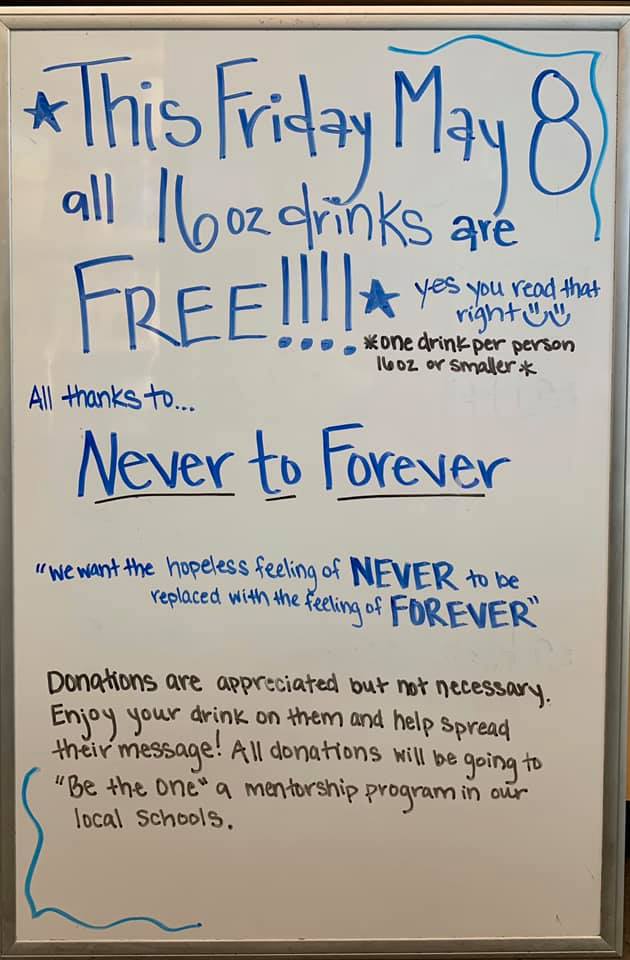 ★This Friday May 8
all 16oz drinks are
FREE!!!!★
yes you read that
right
*one drink per person
16oz or smaller*
All thanks to...
Never to Forever
"we want the hopeless feeling of NEVER to be
replaced with the feeling of FOREVER"
Donations are appreciated but not necessary.
Enjoy your drink on them and help spread
their message! All donations will be going to
"Be the one" a mentorship program in our
local schools.